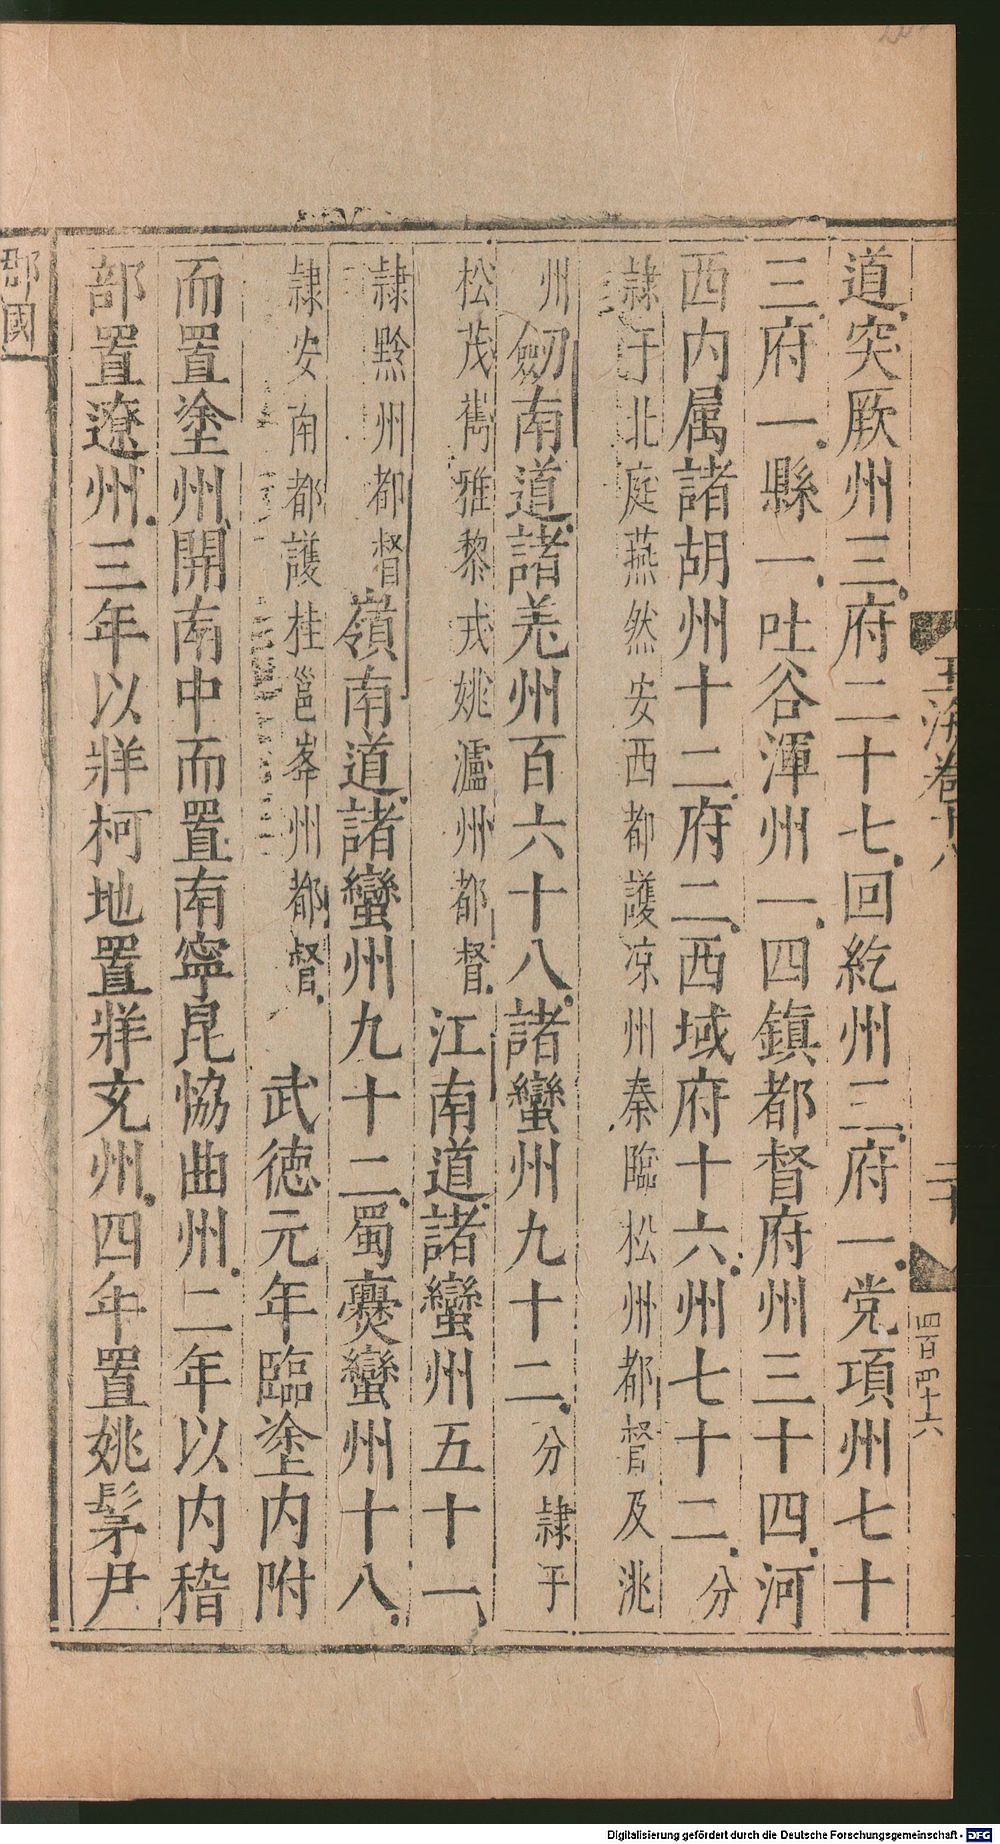 玉海卷十八
二十
四百四十六
道突厥州三府二十七回紇州三府一党項州七十
三府一縣一吐谷渾州一四鎮都督府州三十四河
西内属諸胡州十二府二西域府十六州七十二分
隷于北庭燕然安西都護凉州秦臨松州都督及洮
州劒南道諸羌州百六十八諸蠻州九十二分隷乎
松茂巂雅黎戎姚瀘州都督江南道諸蠻州五十一
隷黔州都督嶺南道諸蠻州九十二蜀爨蠻州十八
隷安南都護桂邕峯州都督 武徳元年臨塗内附
而置塗州開南中而置南寧昆恊曲州二年以内稽
部置遼州三年以牂柯地置牂充州四年置姚髳尹
郡國
Digitalisierung gefördert durch die Deutsche Forschungsgemeinschaft - DFG